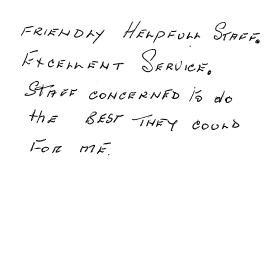 FRIENDLY HELPFULL STAFF.
EXCELLENT SERVICE.
STAFF CONCERNED to do
the BEST THEY COULD
FOR ME.